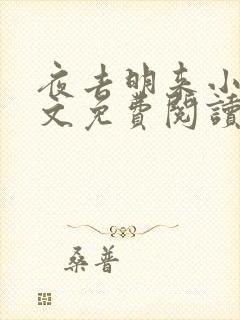 夜去明来小
文免費閱讀
桑普